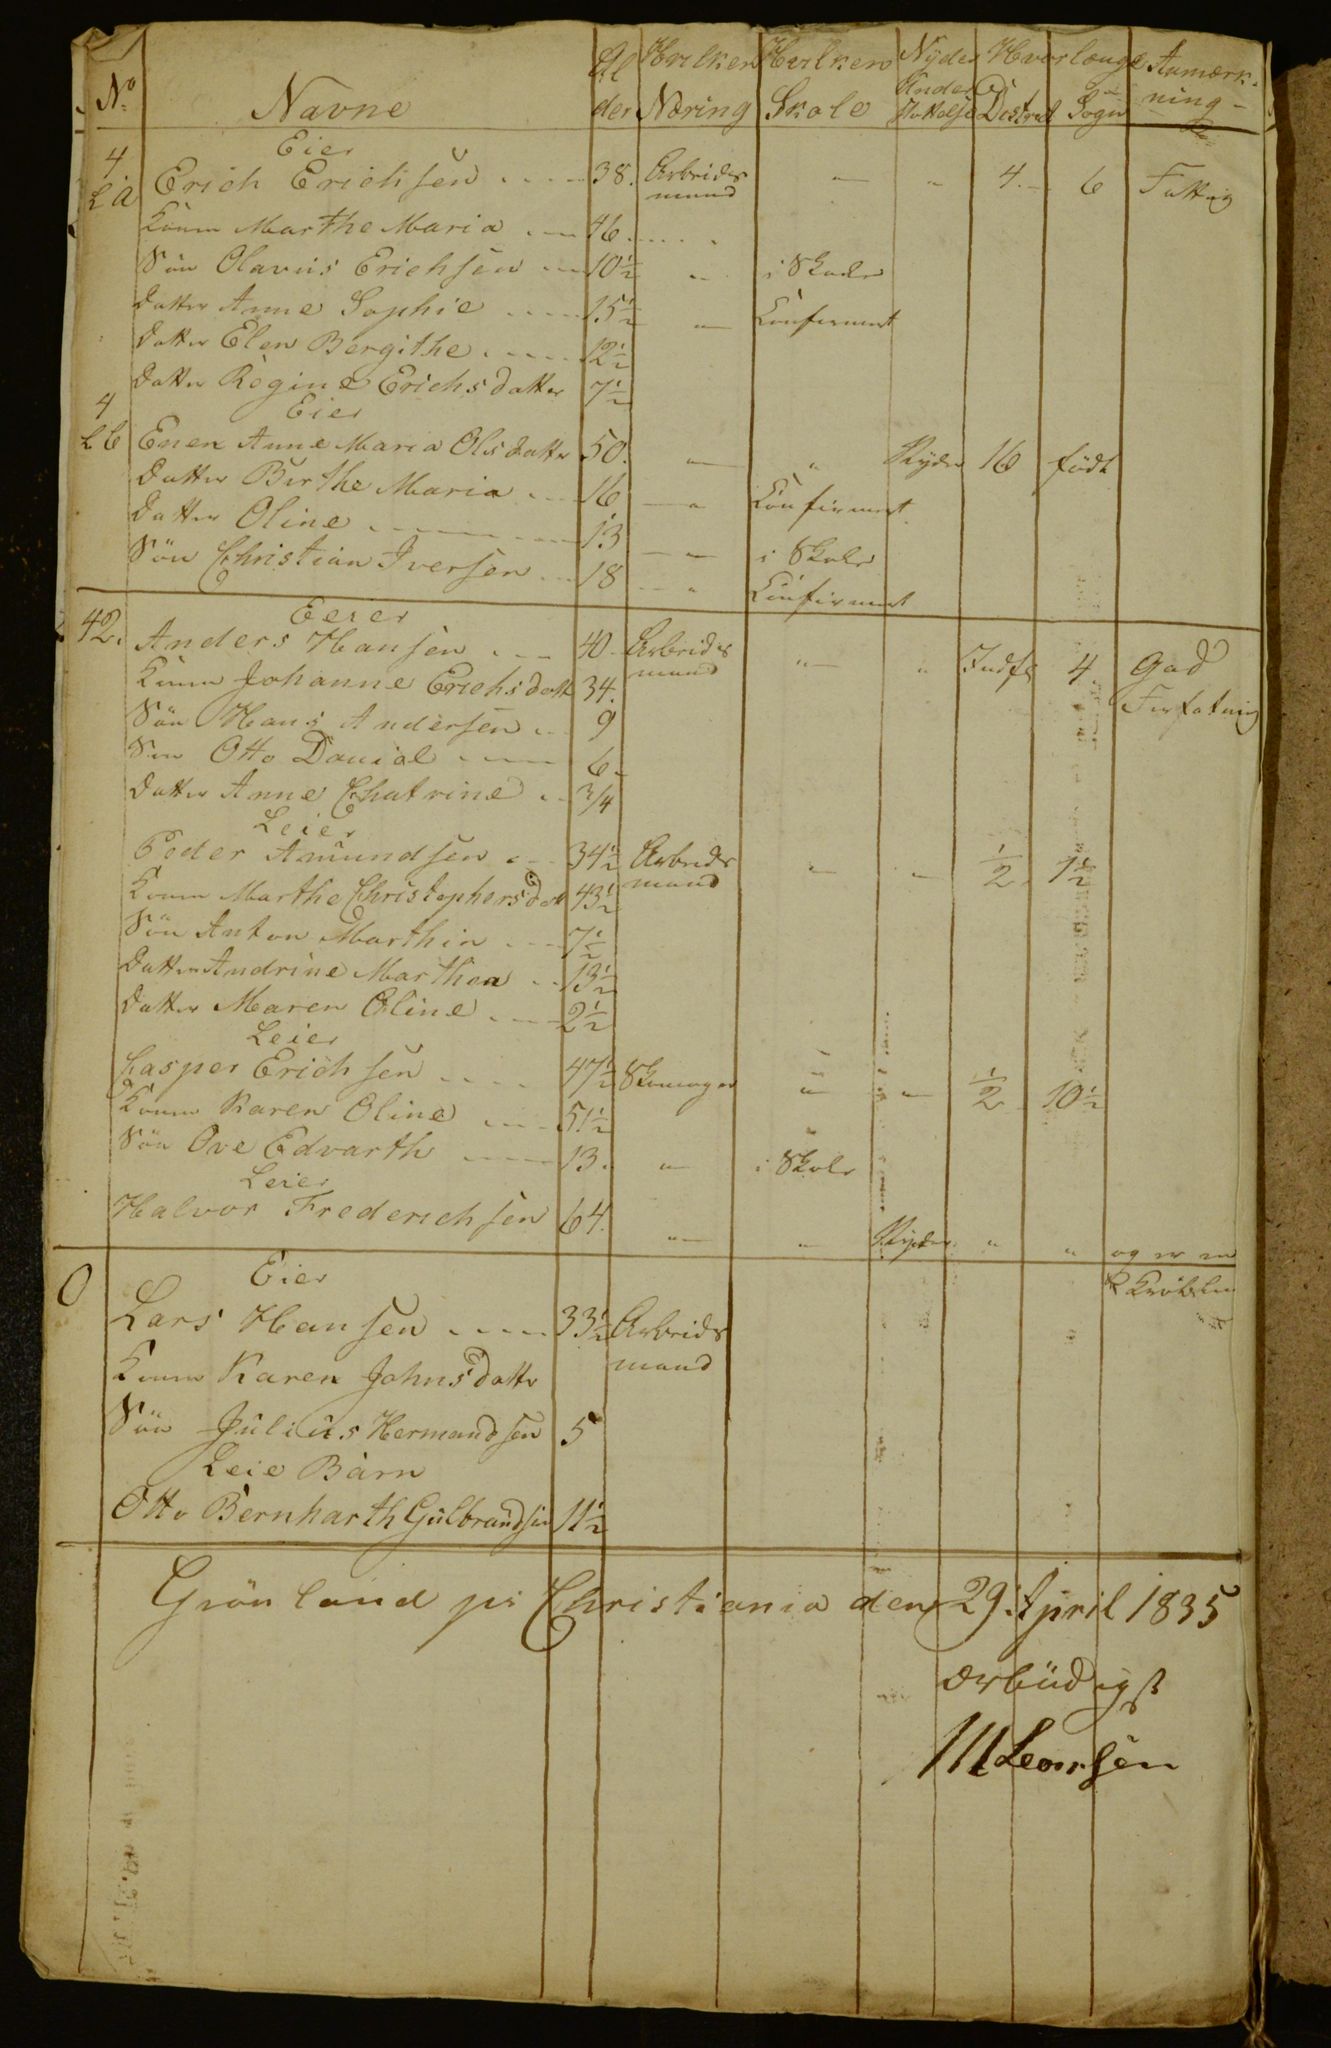 No Navne Al der Hvilken Næring Hvilken Skole Nyder Under Hvorlænge i Distrit Sogn Anmærk- ning
Eier
4 L a Erich Erichsen 38. Arbeids mand - - 4. 6 Fattig
Konen Marthe Maria 46
Søn Olavus Erichsen 10½ " i Skole
Datter Anne Sophie 15½ " Confirmert
Datter Elen Bergithe 12½
Datter Regine Erichsdatter 7½
Eier
4 L b Enen Anne Maria Olsdatter 50. " " Nyder 16 født
Datter Birthe Maria 16 " Confirmert
Datter Oline 13 " i Skole
Søn Christian Iversen 18 " Confirmert
Eeier
42. Anders Hansen 40 Arbeids mand " " Indfl 4. God Forfatning
Konen Johanne Erichsdatt 34.
Søn Hans Andersen 9
Søn Otto Danial 6
Datter Anne Chatrine 3/4
Leier
Peder Amundsen 34½ Arbeids mand " " ½ 1½
Konen Marthe Christophersdat 43½
Søn Anton Marthin 7½
Datter Andrine Marthea 13½
Datter Maren Oline 2½
Leier
Casper Erichsen 47½ Skomager " " ½ 10½
Konen Karen Oline 51½
Søn Ove Edvarth 13. " i Skole
Leier
Halvor Frederichsen 64. " " Nyder " " og er en Krøbling
Eier
0 Lars Hansen 33½ Arbeids mand
Konen Karen Johnsdatter
Søn Julius Hermandsen 5
Leie Barn
Otto Bernharth Gulbrandsen 11½
Grønland pr Christiania den 29 April 1835
ærbüdigst
M Learsen